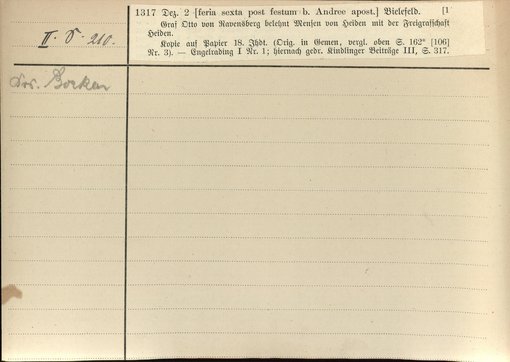 1317 Dez. 2 [feria sexta post festum b. Andree apost.] Bielefeld. [1
Graf Otto von Ravensberg belehnt Mensen von Heiden mit der Freigrafschaft
Heiden.
Kopie auf Papier 18. Jhdt. (Orig. in Gemen, vergl. oben S. 162* [106]
Nr. 3). — Engelrading I Nr. 1; hiernach gedr. Kindlinger Beiträge III, S. 317.
II. S. 210.
Borken